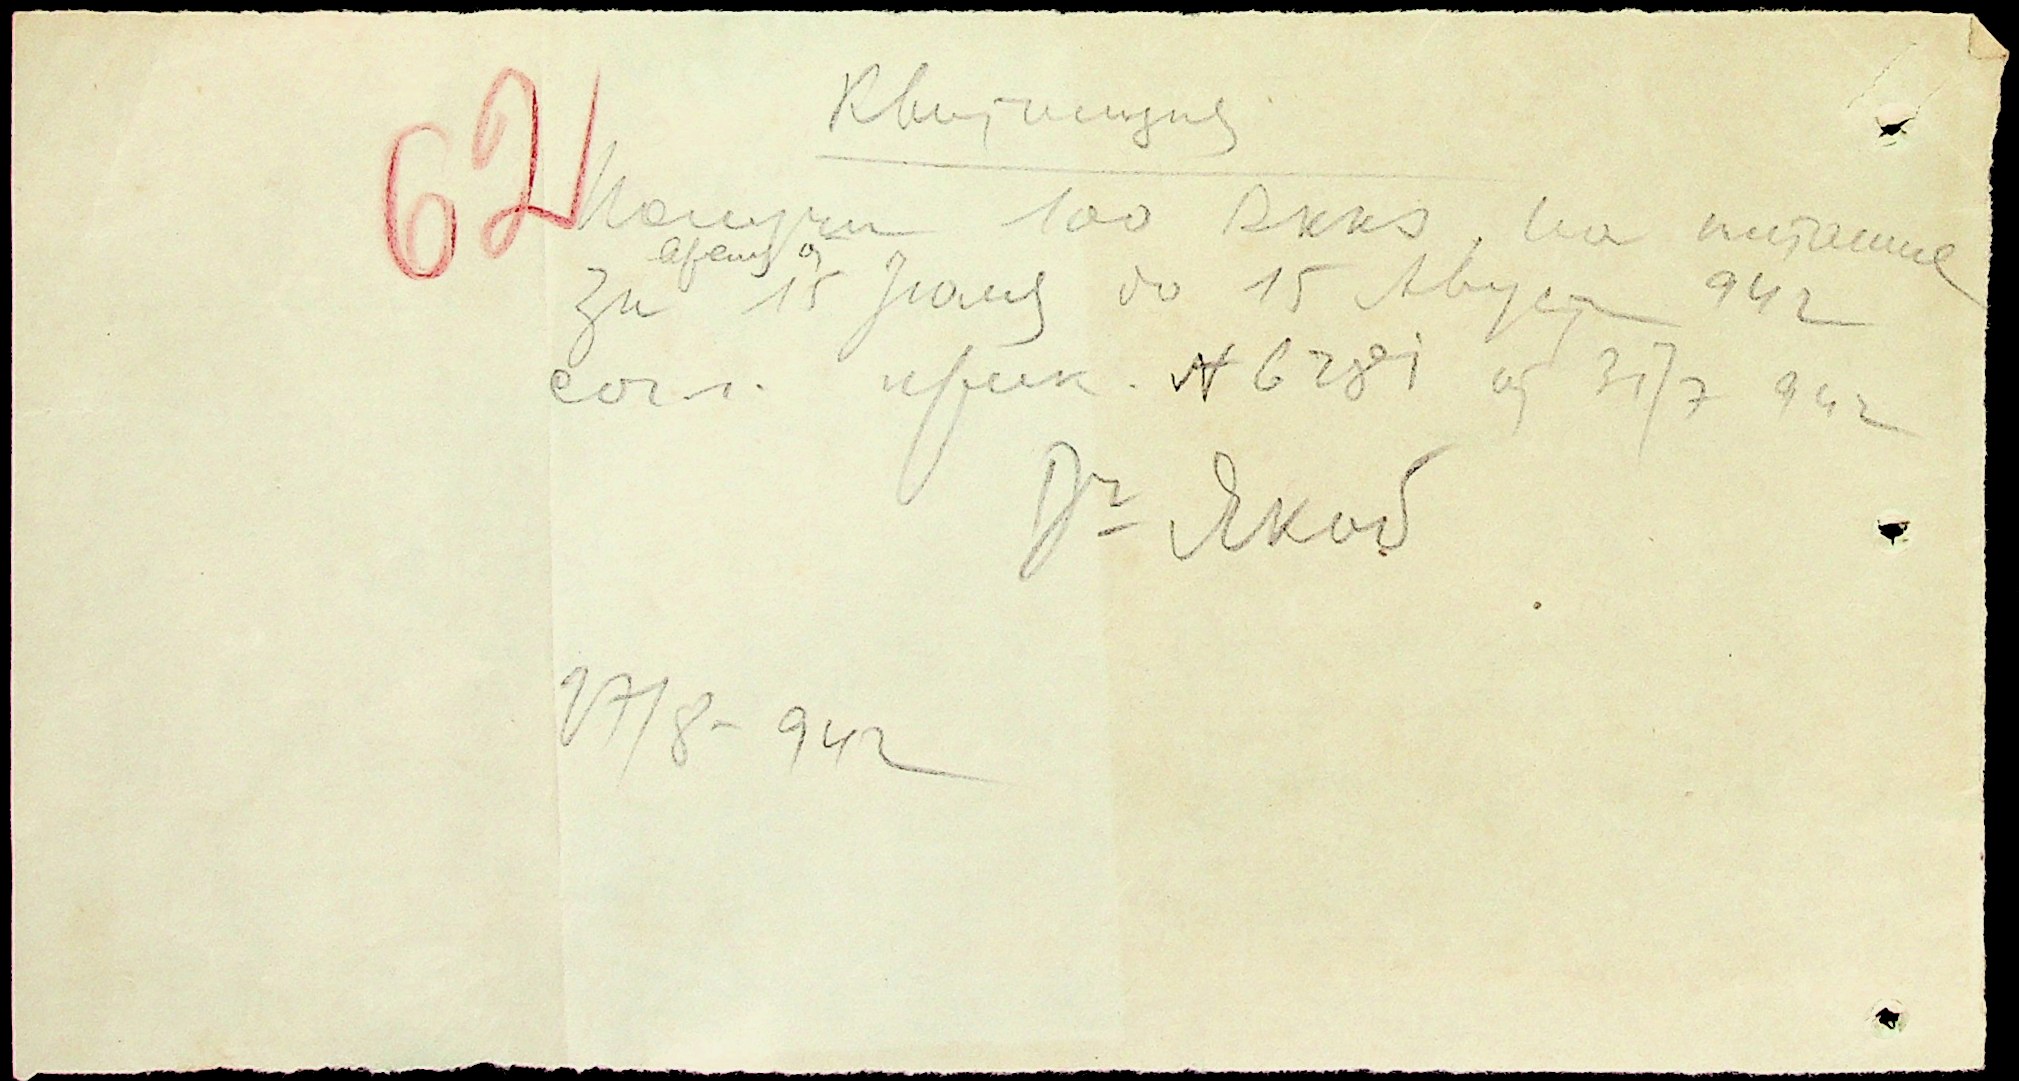 62
Квитанция
Получил 100 RKKS, на питание
время от
за 15 Июля до 15 Август 942
согл. прик. № 6781 от 31/7 942
Dr Якоб
27/8 - 942